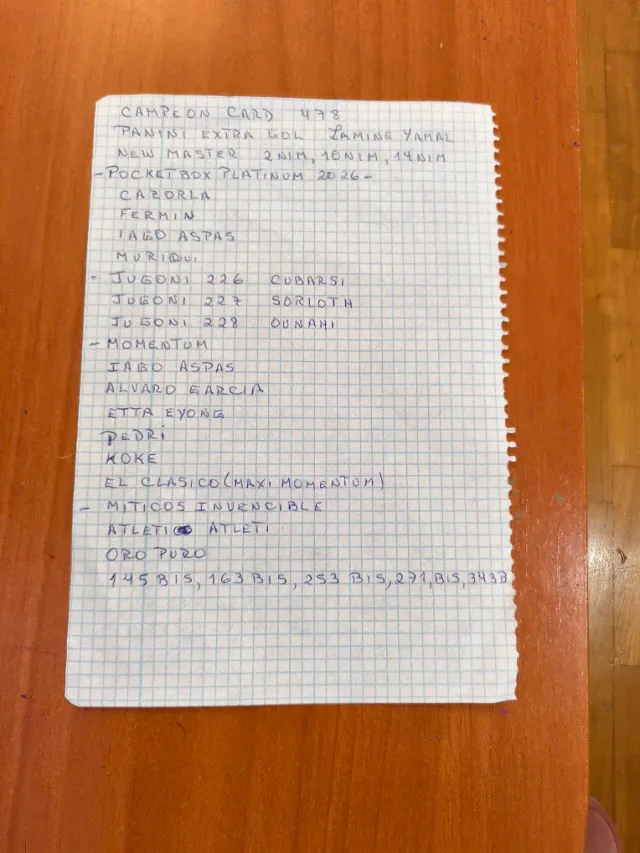 CAMPEON CARD 478
PANINI EXTRA GOL LAMINE YAMAL
NEW MASTER 2NIM, 10NIM, 14NIM
- POCKETBOX PLATINUM 2026 -
CAZORLA
FERMIN
IAGO ASPAS
MURIQUI
- JUGONI 226 CUBARSI
JUGONI 227 SORLOTH
JUGONI 228 OUNAHI
- MOMENTUM
IAGO ASPAS
ALVARO GARCIA
ETTA EYONG
PEDRI
KOKE
EL CLASICO (MAXI MOMENTUM)
- MITICOS INVENCIBLE
ATLETI ATLETI
ORO PURO
145 BIS, 163 BIS, 253 BIS, 271, BIS, 343B